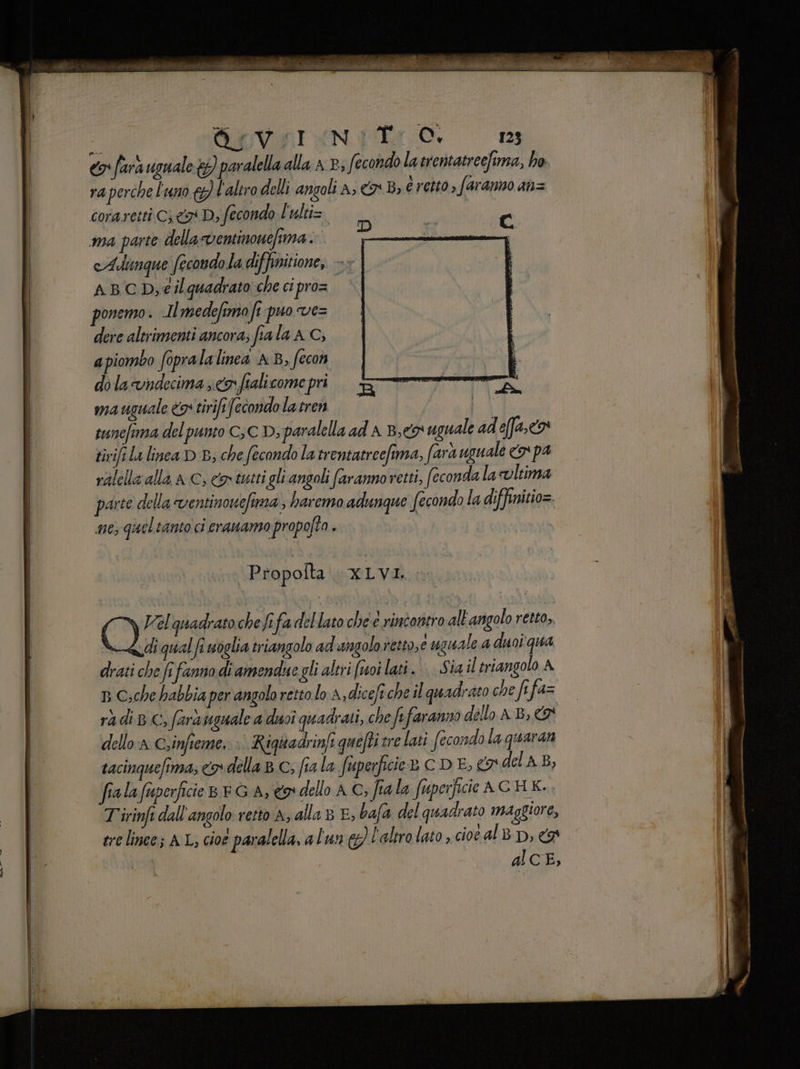 QVINTO. 123
& ſarà uguale & paralella alla A B, ſecondo la trentatreeſima, ho
ra perche l'uno & l'altro delli angoli A, & B, è retto, ſaranno an=
cora retti C, & D, ſecondo l'ulti=
ma parte della ventinoueſima.
Adunque ſecondo la diffinitione,
A B C D, è il quadrato che ci pro=
ponemo. Il medeſimo ſi puo ve=
dere altrimenti ancora, ſia la A C,
a piombo ſopra la linea A B, ſecon
do la vndecima, & ſiali come pri
ma uguale & tiriſi ſecondo la tren
D C
B A
tuneſima del punto C, C D, paralella ad A B, & uguale ad eſſa, &
tiriſi la linea D B, che ſecondo la trentatreeſima, ſarà uguale & pa
ralella alla A C, & tutti gli angoli ſaranno retti, ſeconda la vltima
parte della ventinoueſima, haremo adunque ſecondo la diffinitio=
ne, quel tanto ci erauamo propoſto.
Propoſta XLVI.
QVel quadrato che ſi fa del lato che è rincontro all'angolo retto,
di qual ſi uoglia triangolo ad angolo retto, è uguale a duoi qua
drati che ſi fanno di amendue gli altri ſuoi lati. Sia il triangolo A
B C, che habbia per angolo retto lo A, diceſi che il quadrato che ſi fa=
rà di B C, ſarà uguale a duoi quadrati, che ſi faranno dello A B, &
dello A C, inſieme. Riquadrinſi queſti tre lati ſecondo la quaran
tacinqueſima, & della B C, ſia la ſuperficie B C D E, & del A B,
ſia la ſuperficie B F G A, & dello A C, ſia la ſuperficie A C H K.
Tirinſi dall'angolo retto A, alla B E, baſa del quadrato maggiore,
tre linee; A L, cioè paralella, a l'un & l'altro lato, cioè al B D, &
al C E,